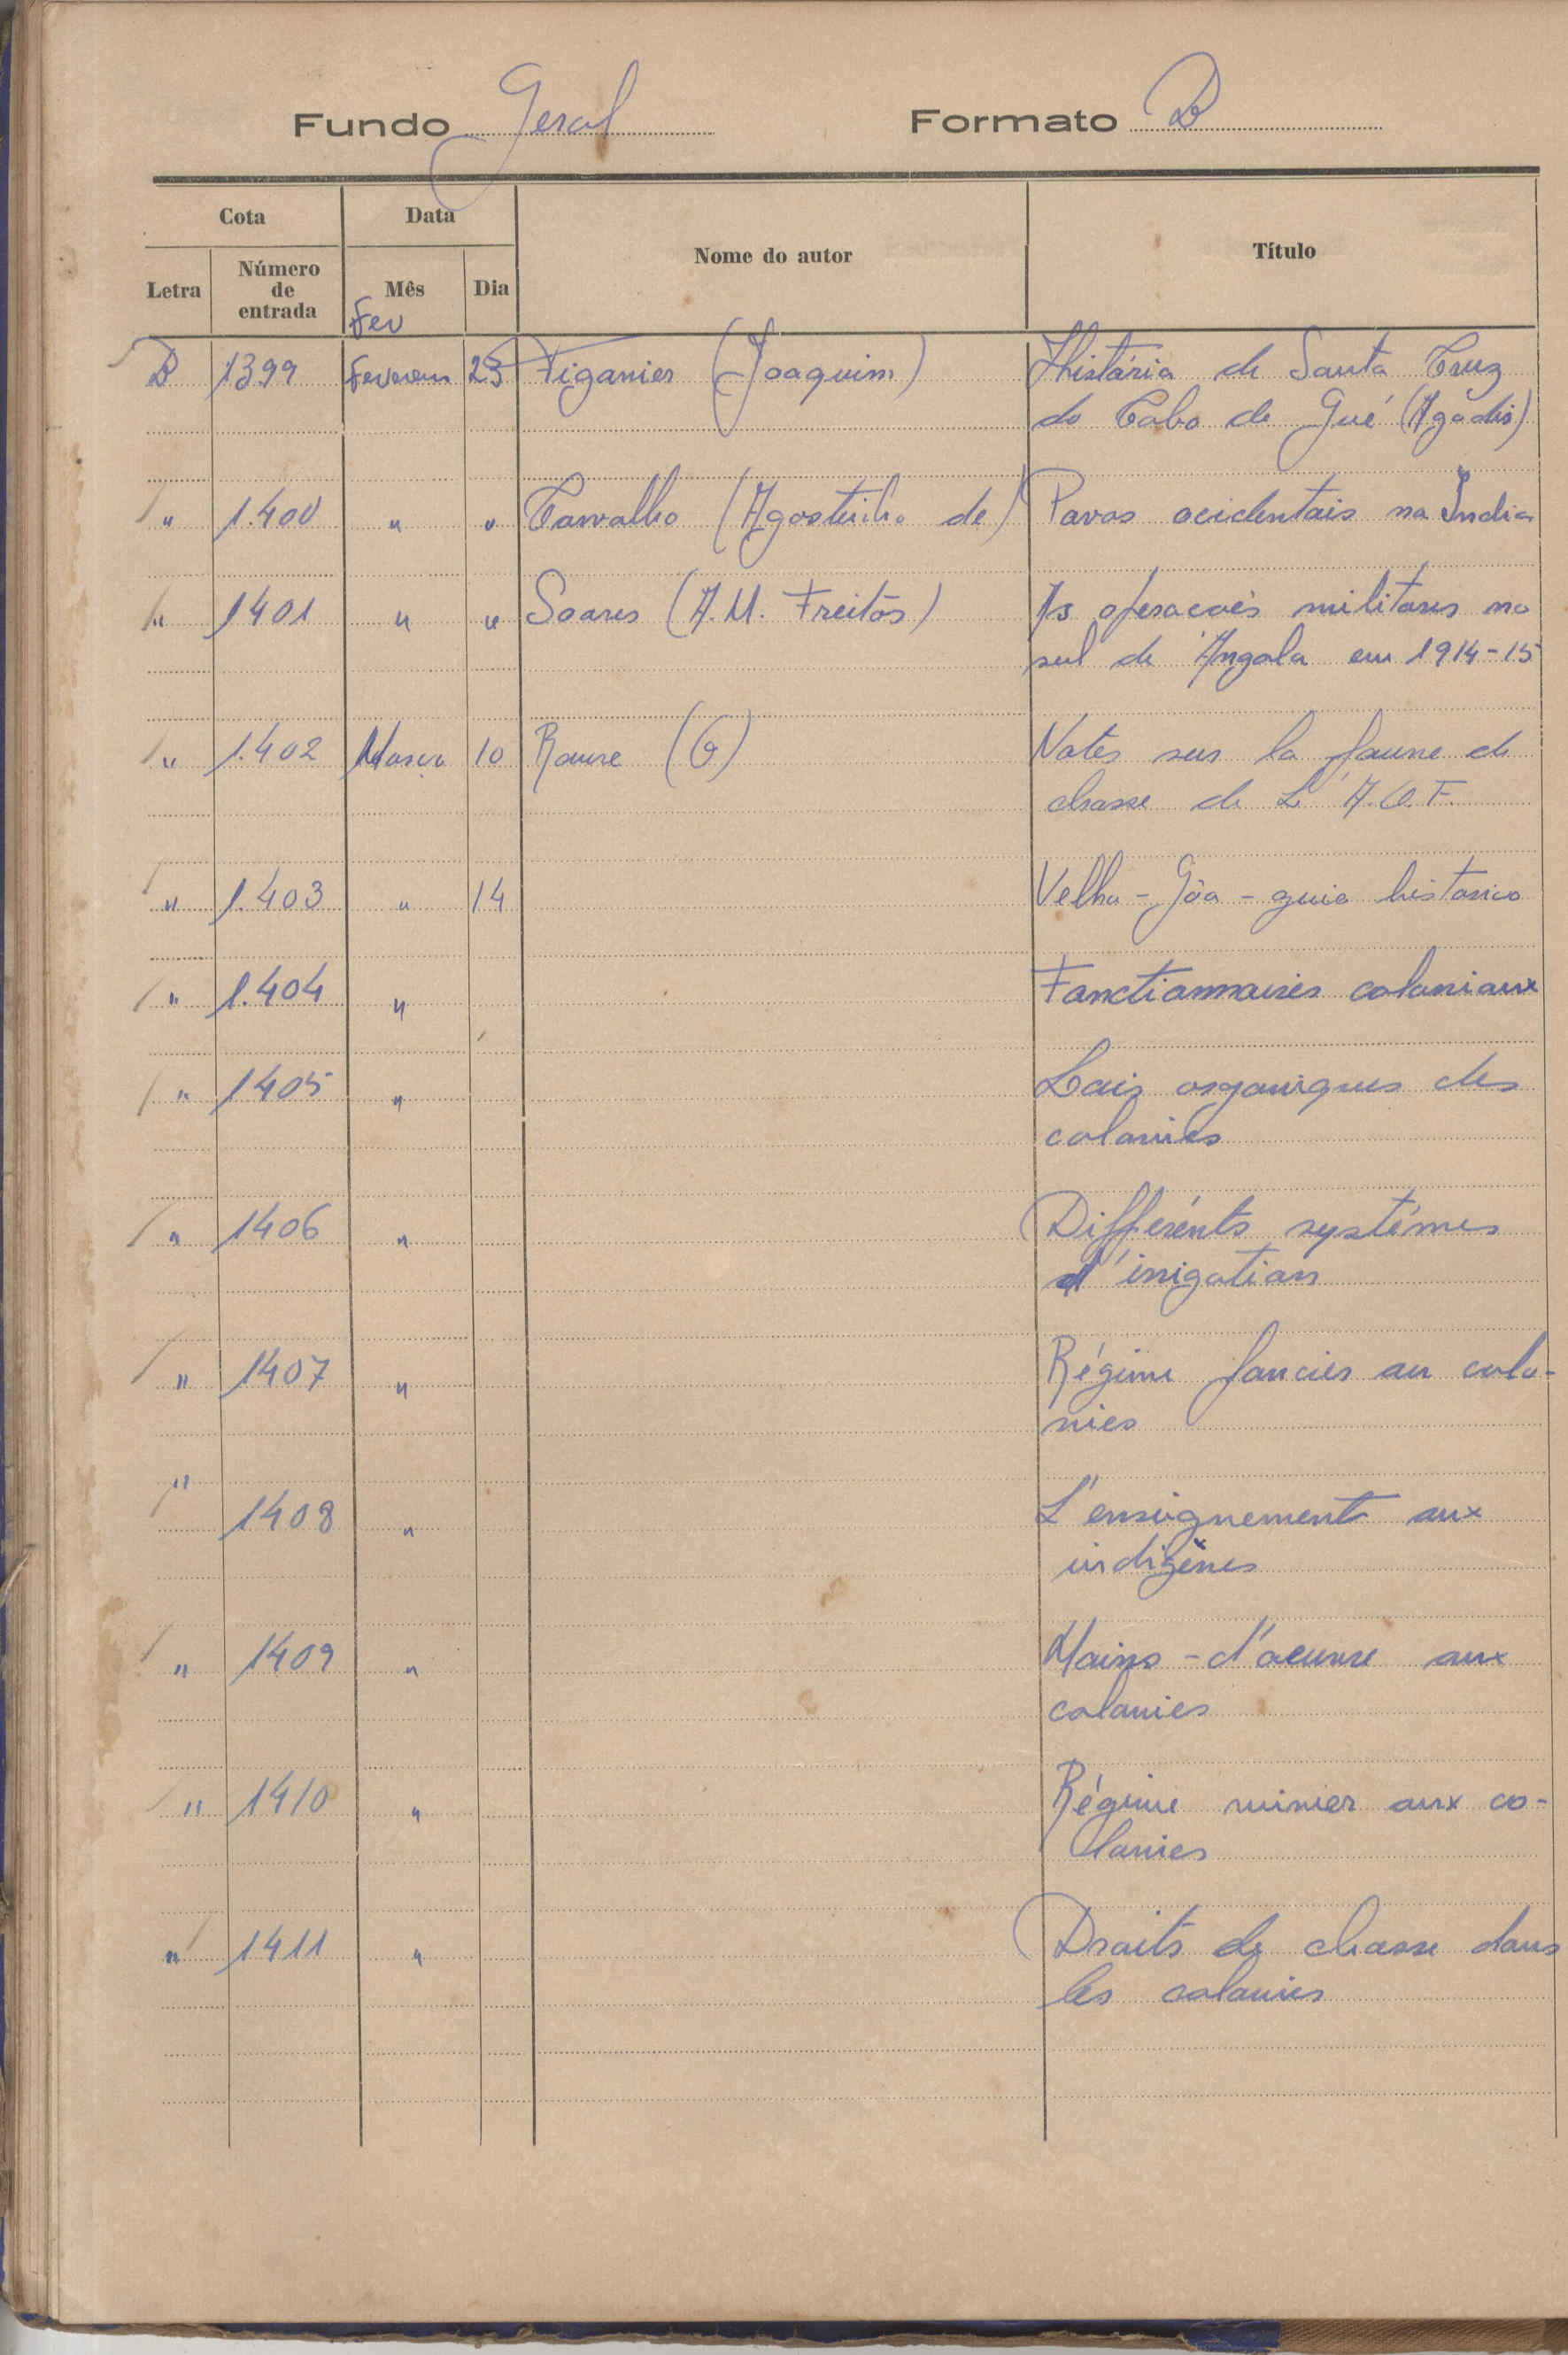 Fundo Geral Formato B
Cota Data Nome do autor Título
Letra Número de entrada Mês Dia
Fev
B 1399 Fevereiro 23 Figanier (Joaquim) História de Santa Cruz
do Cabo de Gué (Agadir)
" 1.400 " " Carvalho (Agostinho de) Povos ocidentais na Índia
" 1401 " " Soares (A. M. Freitas) As operacoès militares no
sul de Angola em 1914-15
" 1.402 Março 10 Roure (G) Notes sur la faune de
chasse de L'A.O.F.
" 1.403 " 14 Velha-Gôa-guia historico
" 1.404 " Fonctionnaires coloniaux
" 1405 " Lois organiques des
colonies
" 1406 " Différents systémes
d'irrigation
" 1407 " Régime foncier au colo-
nies
" 1408 " L'enseignement aux
indigènes
" 1409 " Mains-d'oeuvre aux
colonies
" 1410 " Régime minier aux co-
lonies
" 1411 " Droits de chasse dans
les colonies